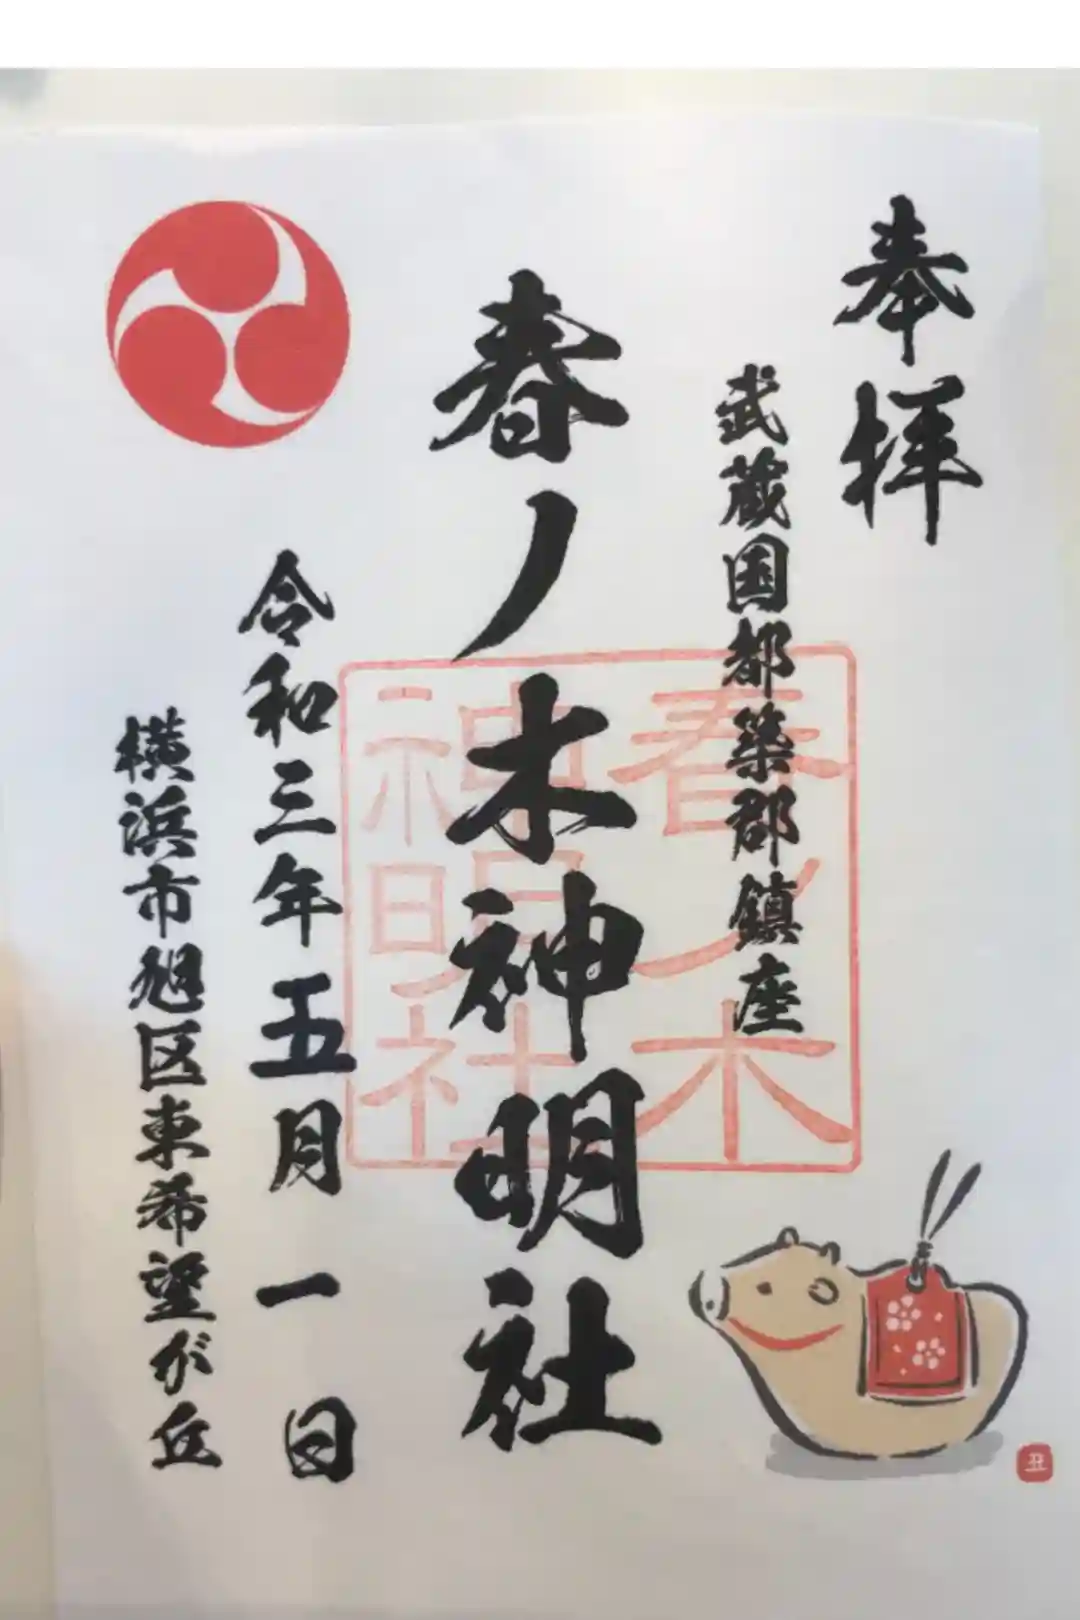 奉拝
武蔵国都築郡鎮座
春ノ木神明社
春ノ木
神明社
令和三年五月一日
横浜市旭区東希望が丘
丑